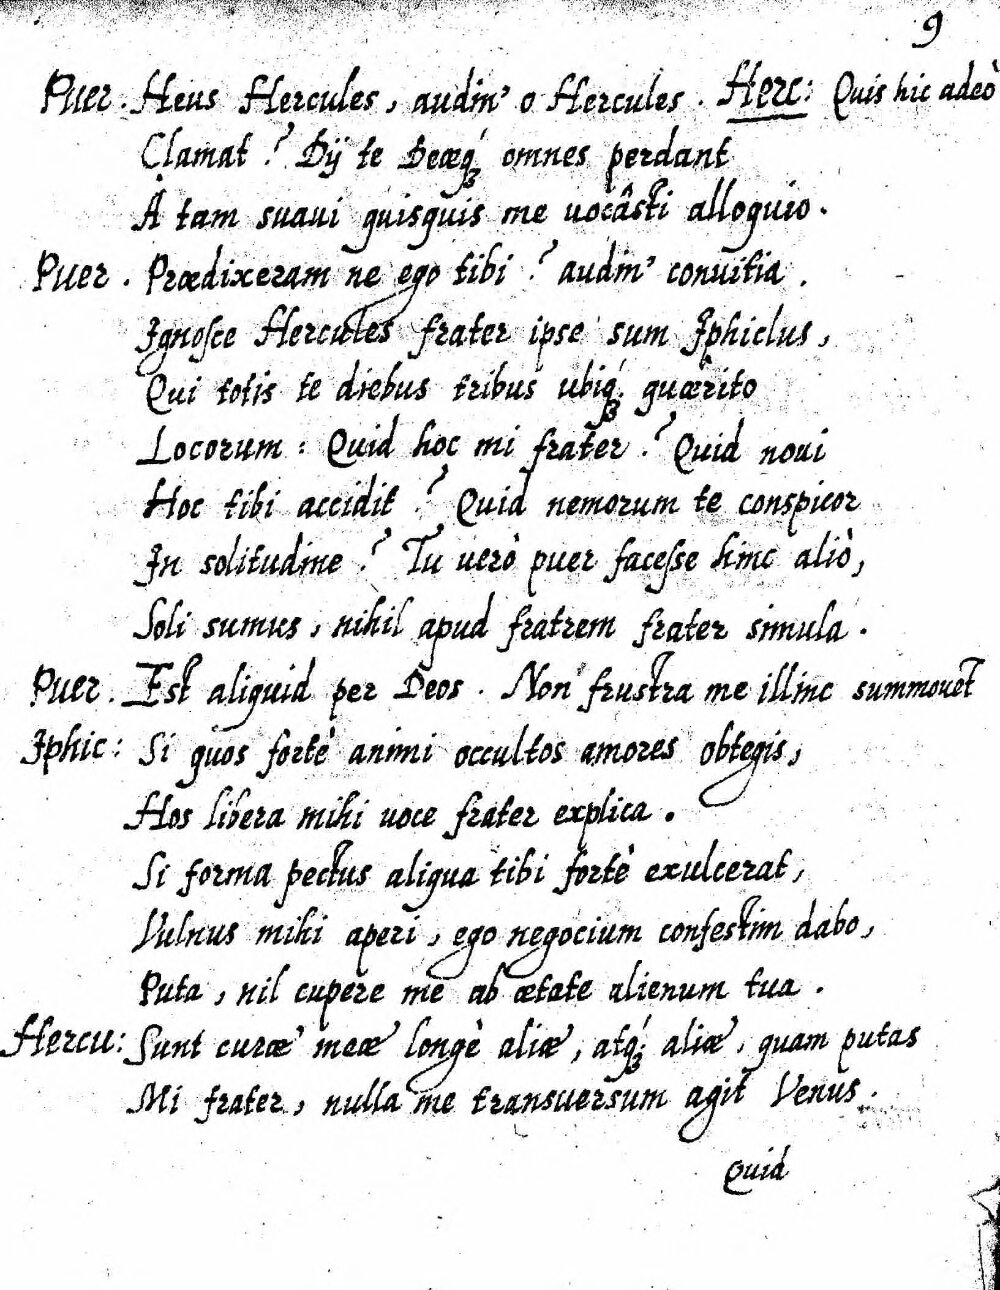 9
Puer. Heus Hercules, audin' o Hercules. Herc: Quis hic adeò
Clamat? Dij te Deæq́; omnes perdant
A tam suaui quisquis me uocâsti alloquio.
Puer. Prædixeram ne ego tibi? audin' conuitia.
Ignoſce Hercules frater ipse sum Iphiclus,
Qui totis te diebus tribus ubiq́; quærito
Locorum: Quid hoc mi frater? Quid noui
Hoc tibi accidit? Quid nemorum te conspicor
In solitudine? Tu uerò puer faceſse hinc aliò,
Soli sumus, nihil apud fratrem frater simula.
Puer. Est aliquid per Deos. Non frustra me illinc summouet
Iphic: Si quos fortè animi occultos amores obtegis,
Hos libera mihi uoce frater explica.
Si forma pectus aliqua tibi fortè exulcerat,
Vulnus mihi aperi, ego negocium confestim dabo,
Puta, nil cupere me ab ætate alienum tua.
Hercu: Sunt curæ meæ longè aliæ, atq́; aliæ, quam putas
Mi frater, nulla me transuersum agit Venus.
Quid